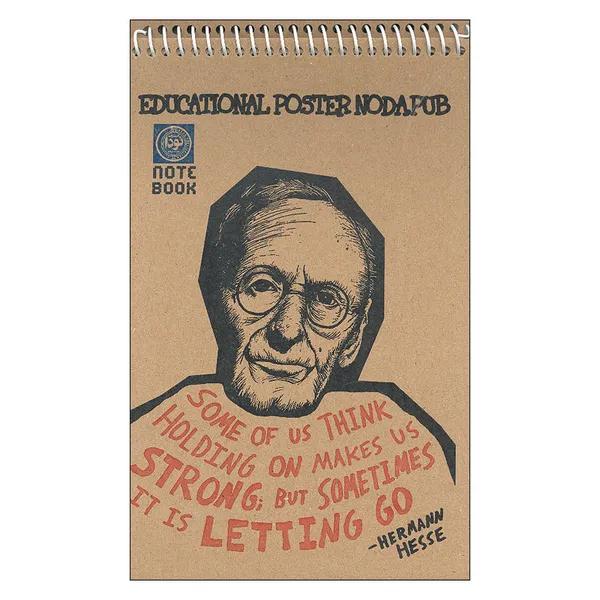 EDUCATIONAL POSTER NODA.PUB
NOTE
BOOK
SOME OF US THINK
HOLDING ON MAKES US
STRONG; BUT SOMETIMES
IT IS LETTING GO
-HERMANN
HESSE